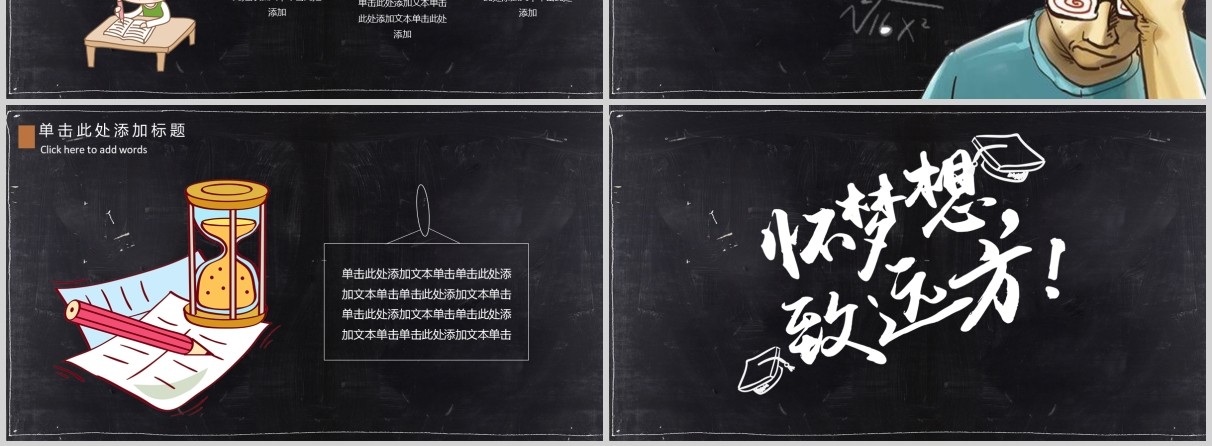 添加
单击此处添加文本单击
此处添加文本单击此处
添加
添加
√16 x²
单击此处添加标题
Click here to add words
单击此处添加文本单击单击此处添
加文本单击单击此处添加文本单击
单击此处添加文本单击单击此处添
加文本单击单击此处添加文本单击
怀梦想，
致远方！